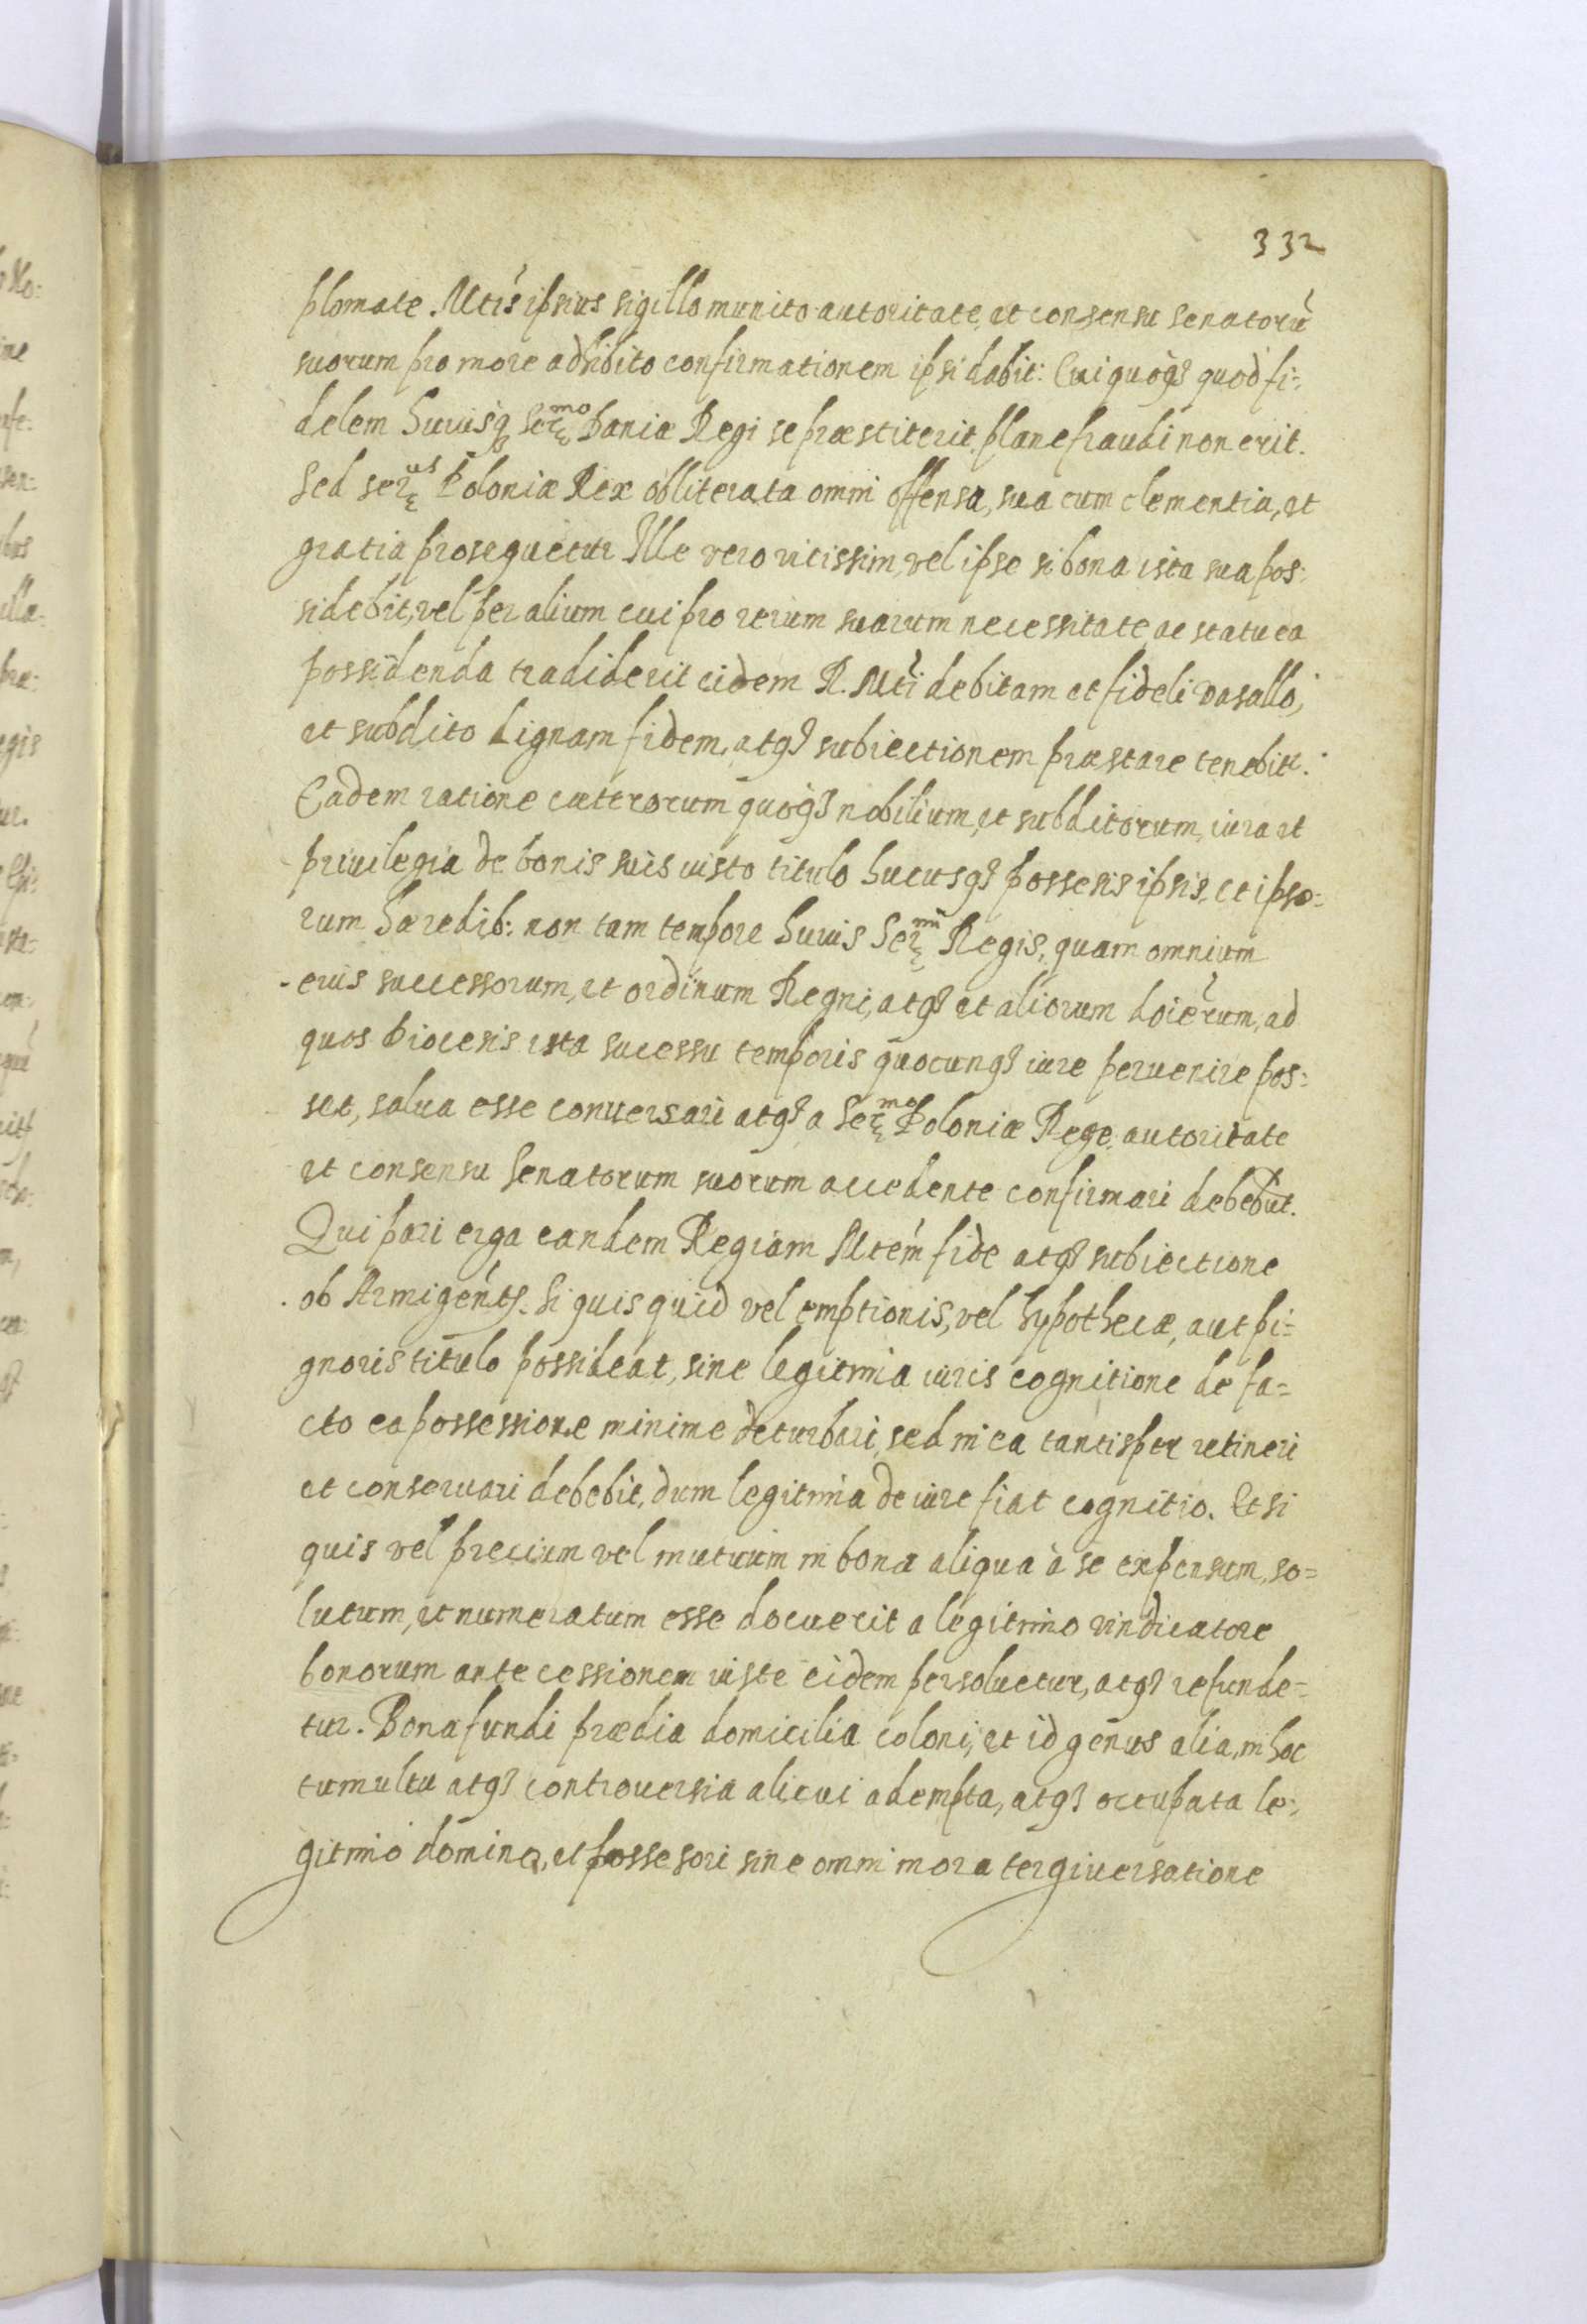 332
plomate. Mtis ipsius sigillo munito autoritate, et consensu senatorũ
suorum pro more adhibito confirmationem ipsi dabit: Cui quoqȝ quod fi:
delem huiusq Sermo Daniæ Regi se præstiterit, plane fraudi non erit.
Sed Serus Poloniæ Rex obliterata omni offensa, sua cum clementia, et
gratia prosequetur Ille vero vicissim, vel ipse si bona ista sua pos:
sidebit, vel per alium cui pro rerum suarum necessitate ac statu ea
possidenda tradiderit eidem R. Mti debitam et fideli vasallo,
et subdito dignam fidem, atqȝ subiectionem præstare tenebitr.
Eadem ratione cæterorum quoqȝ nobilium, et subditorum, iura et
priuilegia de bonis suis iusto titulo hucusqȝ possesis ipsis, et ipso:
rum hæredib: non tam tempore huius Sermi Regis, quam omnium
eius successorum, et ordinum Regni, atqȝ et aliorum doierum, ad
quos Diocesis ista sucessu temporis quocunqȝ iure peruenire pos:
set, salua esse conuersari atqȝ a Sermo Poloniæ Rege, autoritate
et consensu Senatorum suorum accedente confirmari debebut.
Qui pari erga eandem Regiam Mtem fide atqȝ subiectione
obstrmigentȝ. Si quis quid vel emptionis, vel hypothecæ, aut pi:
gnoris titulo possideat, sine legitima iuris cognitione de fa=
cto ea possessione minime deturbari, sed in ea tantisper retineri
et conseruari debebit, dum legitima de iure fiat cognitio. Et si
quis vel precium vel mutuum in bona aliqua à se expensum, so=
lutum, et numeratum esse docuerit a legitimo vindicatore
bonorum ante cessionem iuste eidem persoluetur, atqȝ refunde=
tur. Bona fundi prædia domicilia coloni, et id genus alia, in hoc
tumultu atqȝ controuersia alicui adempta, atqȝ occupata le:
gitimo domino, et possesori sine omni mora tergiuersatione